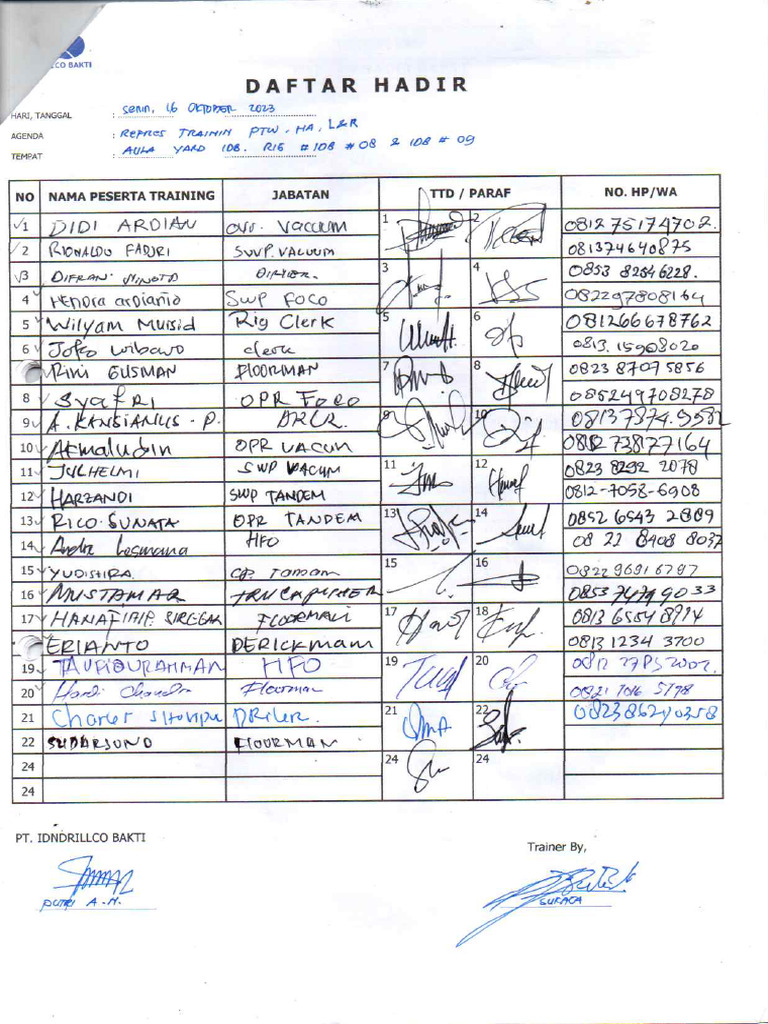 LCO BAKTI
DAFTAR HADIR
HARI, TANGGAL : Senin, 16 OKTOBER 2023
AGENDA : REFRES TRAININ PTW. HA, L&R
TEMPAT : AULA YARD IDB. RIG #IDB #08 & IDB #09
NO NAMA PESERTA TRAINING JABATAN TTD / PARAF NO. HP/WA
1 DIDI ARDIAN OVR. VACUUM 1 2 081275174702.
2 RIONALDO FADJRI SWP. VACUUM 081374640875
3 DIFRAN 3 4 0853 82546228.
4 Hendra ardianto SWP FOCO 082297808164
5 Wilyam Mursid Rig Clerk 5 6 081266678762
6 Joko wibowo clerk 0813.15908020
Rini GUSMAN FLOORMAN 7 8 0823 8707 5856
8 Syafri OPR FOCO 085249708278
9 A. KANSIANUS - P. 9 10 08137874.5582
10 Akmaludin OPR VACUM 0812 738177164
11 JULHELMI SWP VACUM 11 12 0823 8292 2078
12 HARZANDI SWP TANDEM 0812-7058-6908
13 RICO SUNATA OPR TANDEM 13 14 0852 6543 2889
14 Andra Lesmana HFO 08 22 8408 8037
15 YUDISHIRA 15 16 0822 9691 6797
16 MUSTAMAR TRUCKPUSHER 0853 7479 9033
17 HANAFIAH P. SIREGAR FLOORMAN 17 18 0813 6554 8914
ERIANTO DERICKMAM 0813 1234 3700
19 TAUFIQURAHMAN HFO 19 20
20 Hardi Chandra Floorman 0821 7016 5798
21 Charles DRILER. 21 22 082386290358
22 SUDARSONO FLOORMAN
24 24 24
24
PT. IDNDRILLCO BAKTI
Trainer By,
PUTRI A.M.
SURATA